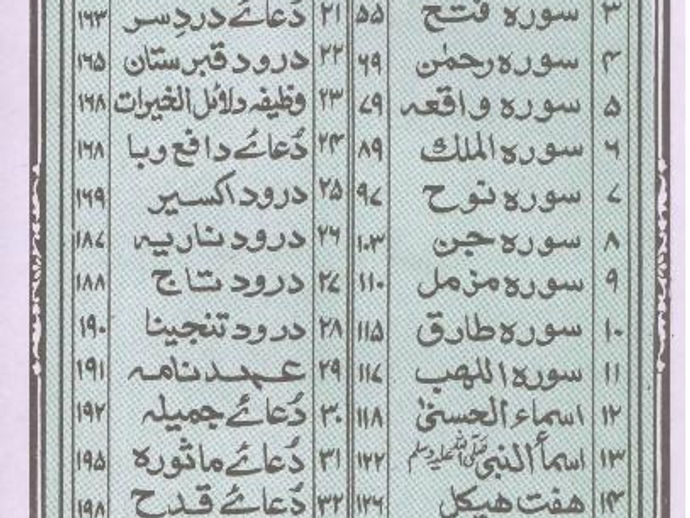 ۳ سورہ فتح ۵۵
۴ سورہ رحمٰن ۶۹
۵ سورہ واقعہ ۷۹
۶ سورہ الملك ۸۹
۷ سورہ نوح ۹۷
۸ سورہ جن ۱۰۳
۹ سورہ مزمل ۱۱۰
۱۰ سورہ طارق ۱۱۵
۱۱ سورہ اللھب ۱۱۷
۱۲ اسماء الحسنیٰ ۱۱۸
۱۳ اسمأ النبی صلی اللہ علیہ وسلم ۱۲۲
۱۴ ھفت ھیکل ۱۲۶
۲۱ دُعائے دردِسر ۱۶۳
۲۲ درود قبرستان ۱۶۵
۲۳ وظیفہ دلائل الخیرات ۱۶۸
۲۴ دُعائے دافع وبا ۱۶۸
۲۵ درود اکسیر ۱۶۹
۲۶ درود ناریہ ۱۸۷
۲۷ درود تاج ۱۸۸
۲۸ درود تنجینا ۱۹۰
۲۹ عہد نامہ ۱۹۱
۳۰ دُعائے جمیلہ ۱۹۲
۳۱ دُعائے ماثورہ ۱۹۵
۳۲ دُعائے قدح ۱۹۸